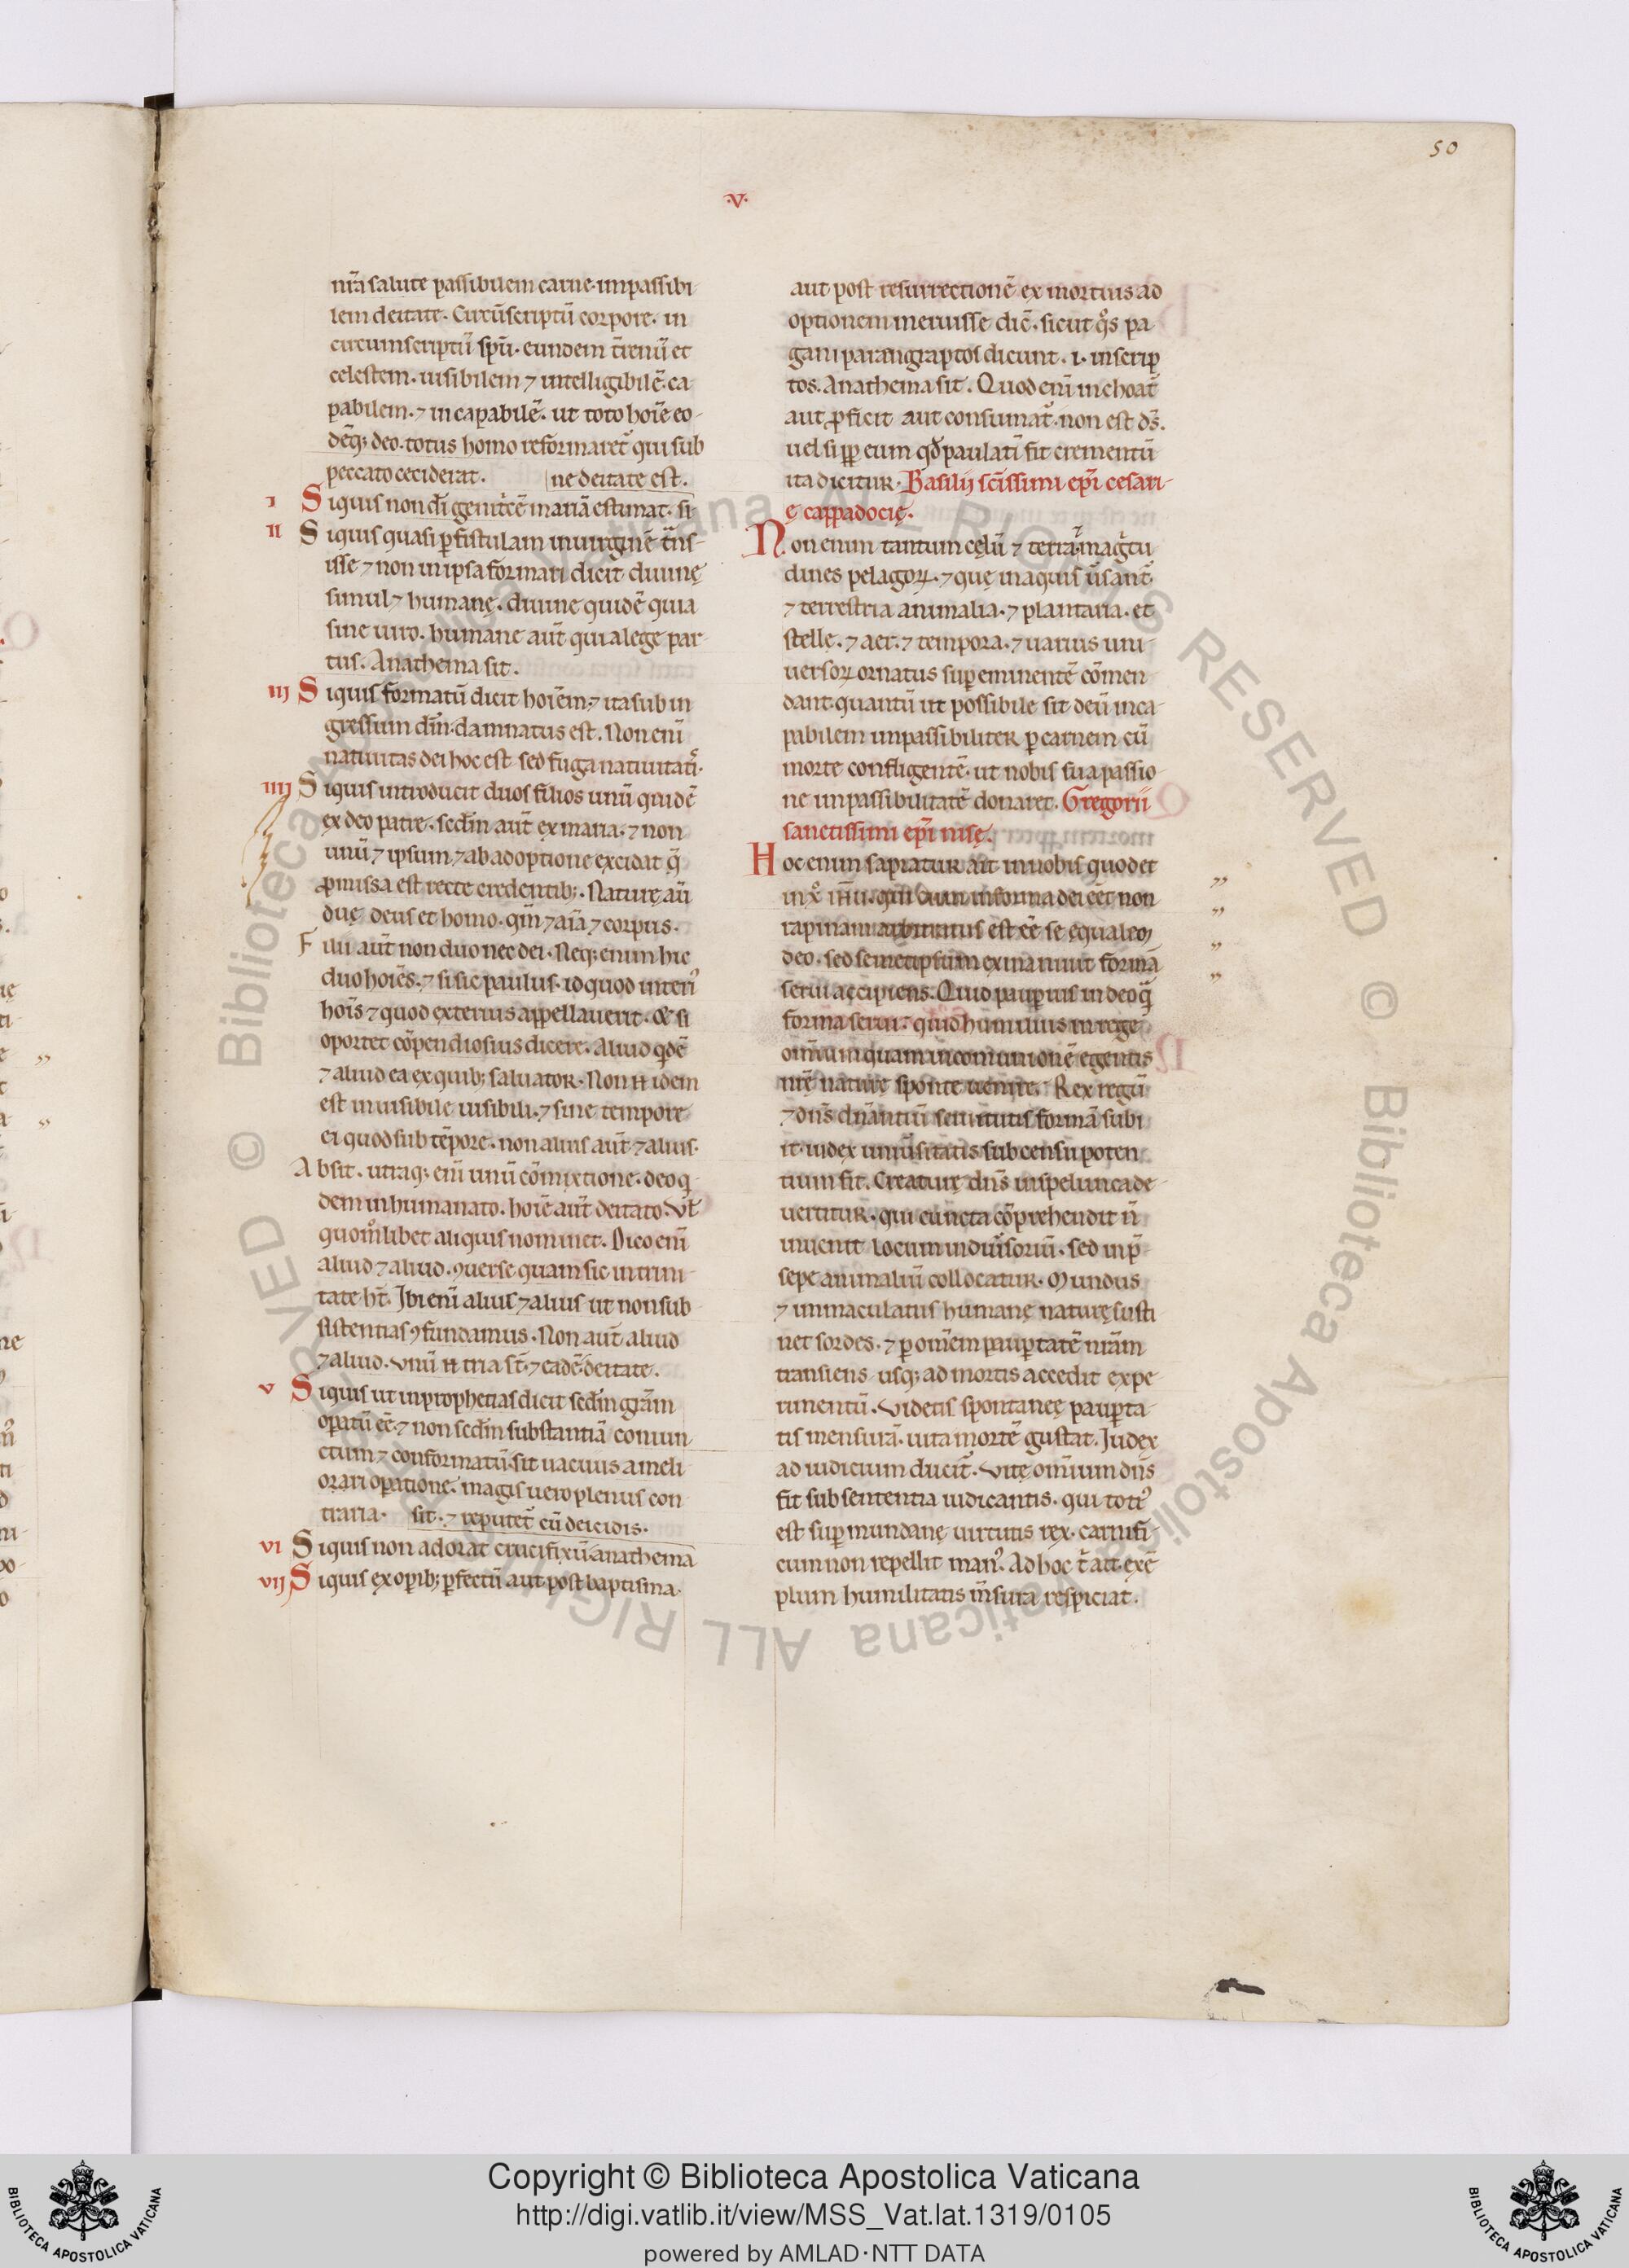 50
·V·
nr̃a salute passibilem carne·impassibi
lem deitate. Circũscriptũ corpore. in
circumscriptũ sp̃u. eundem t̃renũ et
celestem. uisibilem ⁊ intelligibilẽ. ca
pabilem. ⁊ incapabilẽ. ut toto hoĩe eo-
dẽq; deo. totus homo reformaret᷑ qui sub
peccato ceciderat. ne deitate est.
I Siquis non dĩ genitⁱcẽ mariã estimat. si-
II Siquis quasi ꝑ fistulam in uirginẽ t̃ns-
isse ⁊ non in ipsa formari dicit diuinę
simul ⁊ humanę. diuine quidẽ quia
sine uiro. humane aũt quia lege par
tus. Anathema sit.
III Siquis formatũ dicit hoĩem. ⁊ ita sub in
gressum dñm. damnatus est. Non enĩ
natiuitas dei hoc est sed fuga natiuitatⁱ.
IIII Siquis introducit duos filios unũ quidẽ
ex deo patre. sedm̃ aũt ex maria. ⁊ non
unũ ⁊ ipsum. ⁊ ab adoptione excidat q̃
ꝓmissa est recte credentib;. Naturę aũ
duę deus et homo. qm̃ ⁊ aĩa ⁊ corpus.
Filii aũt non duo nec dei. Neq; enim hic
duo hoĩes. ⁊ si sic paulus. id quod interiꝰ
hoĩs ⁊ quod exterius appellauerit. & si
oportet cõpendiosius dicere. Aliud qⁱdẽ
⁊ aliud ea ex quib; saluator. Non ñ idem
est inuisibile uisibili. ⁊ sine tempore
ei quod sub tẽpore. non alius aũt ⁊ alius.
Absit. utraq; enĩ unũ cõmixtione. deo qⁱ
dem inhumanato. hoĩe aũt deitato. ut̃
quom̊libet aliquis nominet. Dico enĩ
aliud ⁊ aliud. ꝯuerse quam sic in trini
tate ht̃. Ibi enĩ alius ⁊ alius ut non sub
sistentias ꝯfundamus. Non aũt aliud
⁊ aliud. unũ ñ tria st̃. ⁊ eadẽ deitate.
V Siquis ut in prophetias dicit sedm̃ grãm
opatũ eẽ. ⁊ non sedm̃ substantiã coniun
ctum ⁊ conformatũ. sit uacuus a meli
orari oꝑatione. magis uero plenus con
traria. sit. ⁊ reputet᷑ cũ deicidis.
VI Siquis non adorat crucifixũ. anathema
VII Siquis ex oꝑib; ꝑfectũ. aut post baptisma.
aut post resurrectionẽ ex mortuis ad
optionem meruisse dic̃. sicut q̊s pa
gani parangraptos dicunt. i. inscrip
tos. Anathema sit. Quod enĩ inchoat᷑
aut ꝓficit aut consumat᷑. non est ds̃.
uel si ꝓpter eum qđ paulatĩ fit crementũ
ita dicitur. Basilij sc̃issimi ep̃i cesari-
ę cappadocię.
Non enim tantum cęlũ ⁊ terra. ⁊ mag̃tu
dines pelagoꝝ. ⁊ quę in aquis ũsant᷑
⁊ terrestria animalia. ⁊ plantaria. et
stellę. ⁊ aer. ⁊ tempora. ⁊ uarius uni
uersoꝝ ornatus suꝑeminentẽ cõmen
dant. quantũ ut possibile sit deũ inca-
pabilem impassibiliter ꝑ carnem cũ
morte confligentẽ. ut nobis sua passio
ne impassibilitatẽ donaret. Gregorii
sanctissimi ep̃i nisę.
Hoc enim sapiatur ait in uobis quod et
in x̊ ih̃u. qui cum in forma dei eẽt non
rapinam arbitratus est eẽ se equalem
deo. sed semetipsum exinaniuit formã
serui accipiens. Quid pauꝑius in deo q̃
forma serui. quid humilius in rege
omnium quam in comunionẽ egentis
nr̃ę naturę sponte uenire. Rex regũ
⁊ dñs dñantiũ seruitutis formã subi
it. iudex uniũsitatis sub censu poten
tium fit. Creaturę dñs in spelunca de
uertitur. qui cuncta cõprehendit ñ
inuenit locum in diũsoriũ. sed in p̃
sepe animaliũ collocatur. Mundus
⁊ immaculatus humanę naturę susti
net sordes. ⁊ ꝑ om̃em pauꝑtatẽ nr̃am
transiens usq; ad mortis accedit expe
rimentũ. Videtis spontaneę pauꝑta
tis mensurã. uita mortẽ gustat. Iudex
ad iudicium ducit᷑. Vitę om̃ium dñs
fit sub sententia iudicantis. qui totiꝰ
est suꝑmundanę uirtutis rex. carnifi-
cum non repellit manꝰ. Ad hoc t̃ ait exẽ
plum humilitatis m̃sura respiciat.
Copyright © Biblioteca Apostolica Vaticana
http://digi.vatlib.it/view/MSS_Vat.lat.1319/0105
powered by AMLAD·NTT DATA